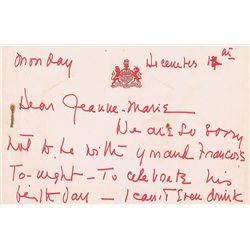 Monday December 1st
Dear Jeanne-Marie
We are so sorry
not to be with you and Francois
To-night - To celebrate his
birthday - I can't even drink